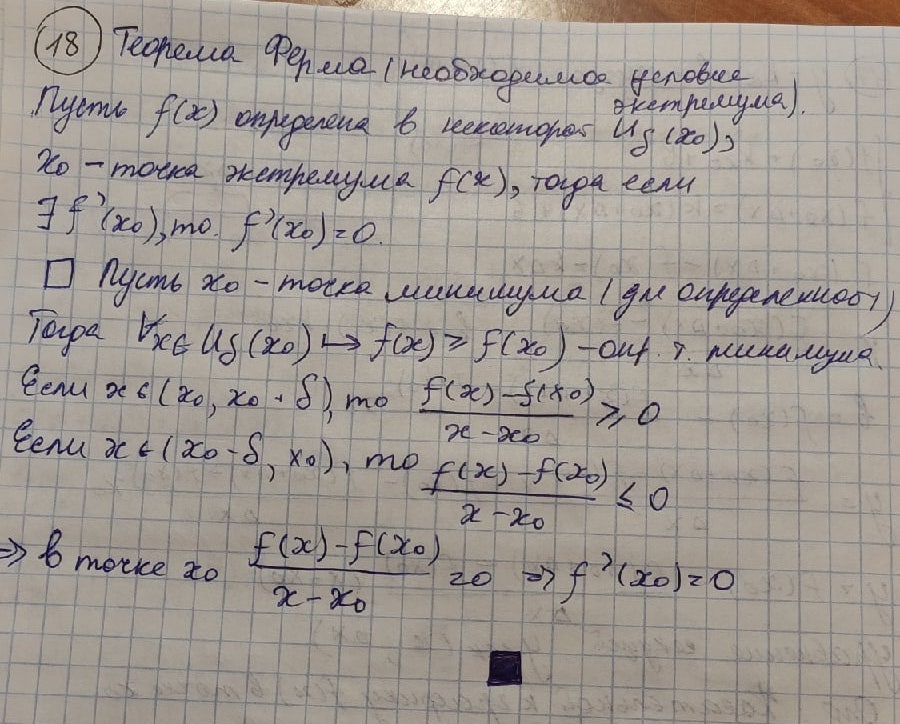 18 Теорема Ферма (необходимое условие экстремума).
Пусть f(x) определена в некоторой U_δ(x₀);
x₀ – точка экстремума f(x), тогда если
∃ f'(x₀), то f'(x₀) = 0.
□ Пусть x₀ – точка минимума (для определенности)
Тогда ∀x∈U_δ(x₀) ↦ f(x) ≥ f(x₀) – опр. т. минимума.
Если x ∈ (x₀, x₀ + δ), то (f(x) – f(x₀))/(x – x₀) ≥ 0
Если x ∈ (x₀ – δ, x₀), то (f(x) – f(x₀))/(x – x₀) ≤ 0
⇒ в точке x₀ (f(x) – f(x₀))/(x – x₀) = 0 ⇒ f'(x₀) = 0
■